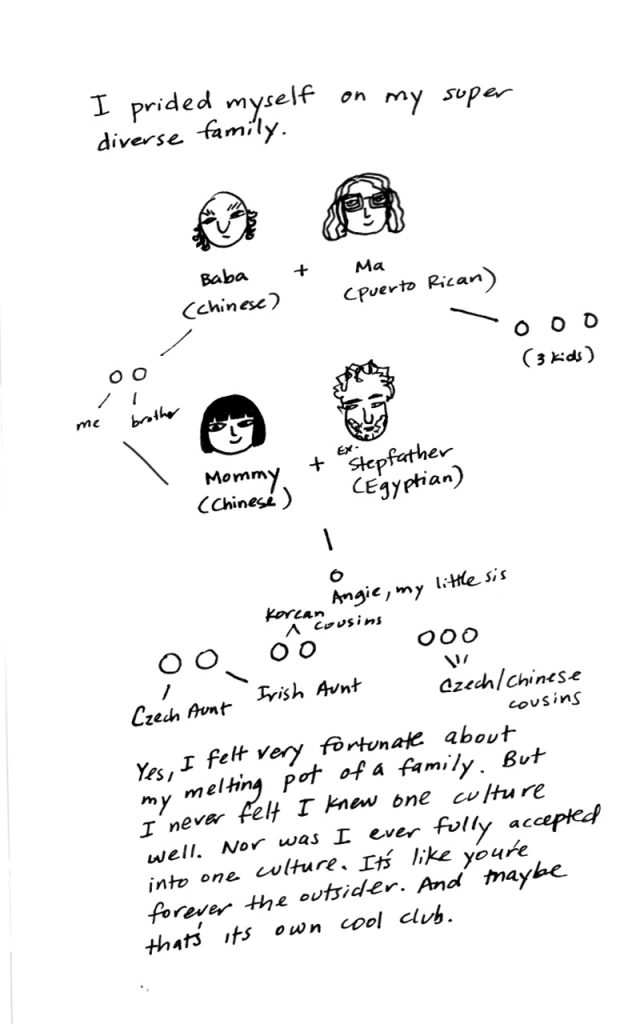 I prided myself on my super
diverse family.
Baba + Ma
(Chinese) (Puerto Rican)
(3 kids)
me brother
Mommy + Ex-Stepfather
(Chinese) (Egyptian)
Angie, my little sis
Korean
cousins
Czech Aunt
Irish Aunt
Czech/Chinese
cousins
Yes, I felt very fortunate about
my melting pot of a family. But
I never felt I knew one culture
well. Nor was I ever fully accepted
into one culture. It's like you're
forever the outsider. And maybe
that's its own cool club.